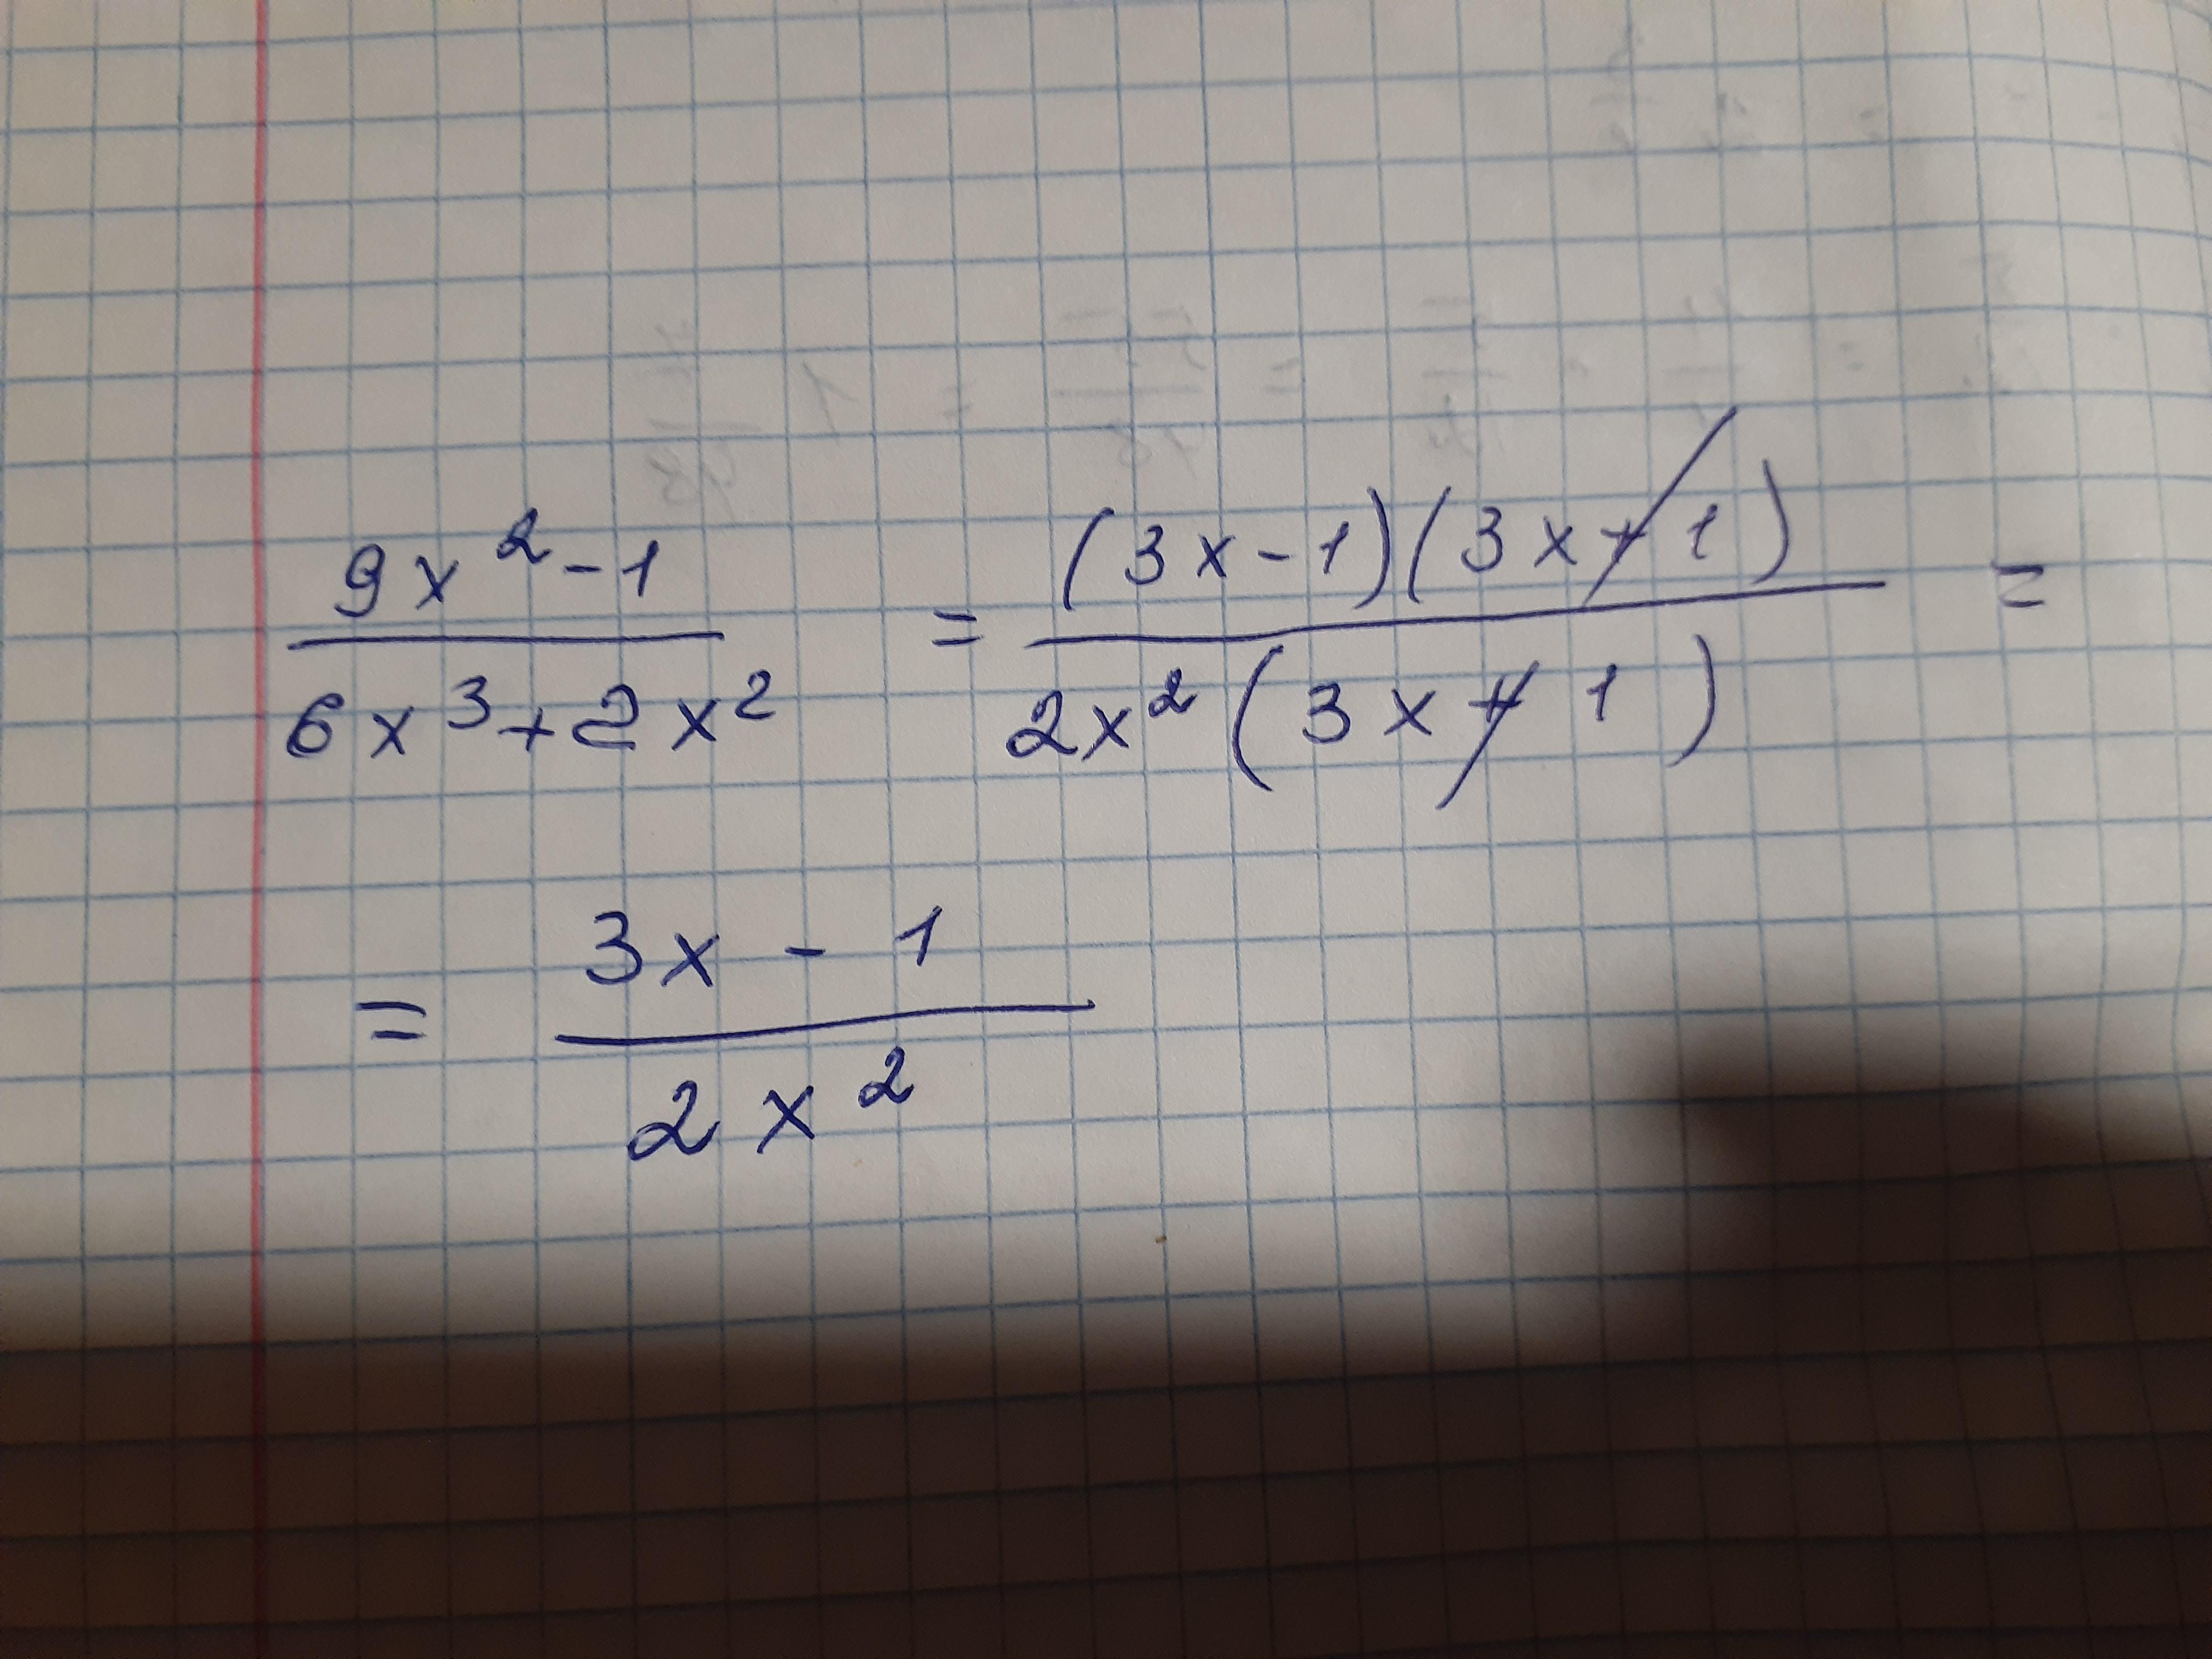 9x² - 1 / 6x³ + 2x² = (3x - 1)(3x + 1) / 2x² (3x + 1) =
= 3x - 1 / 2x²